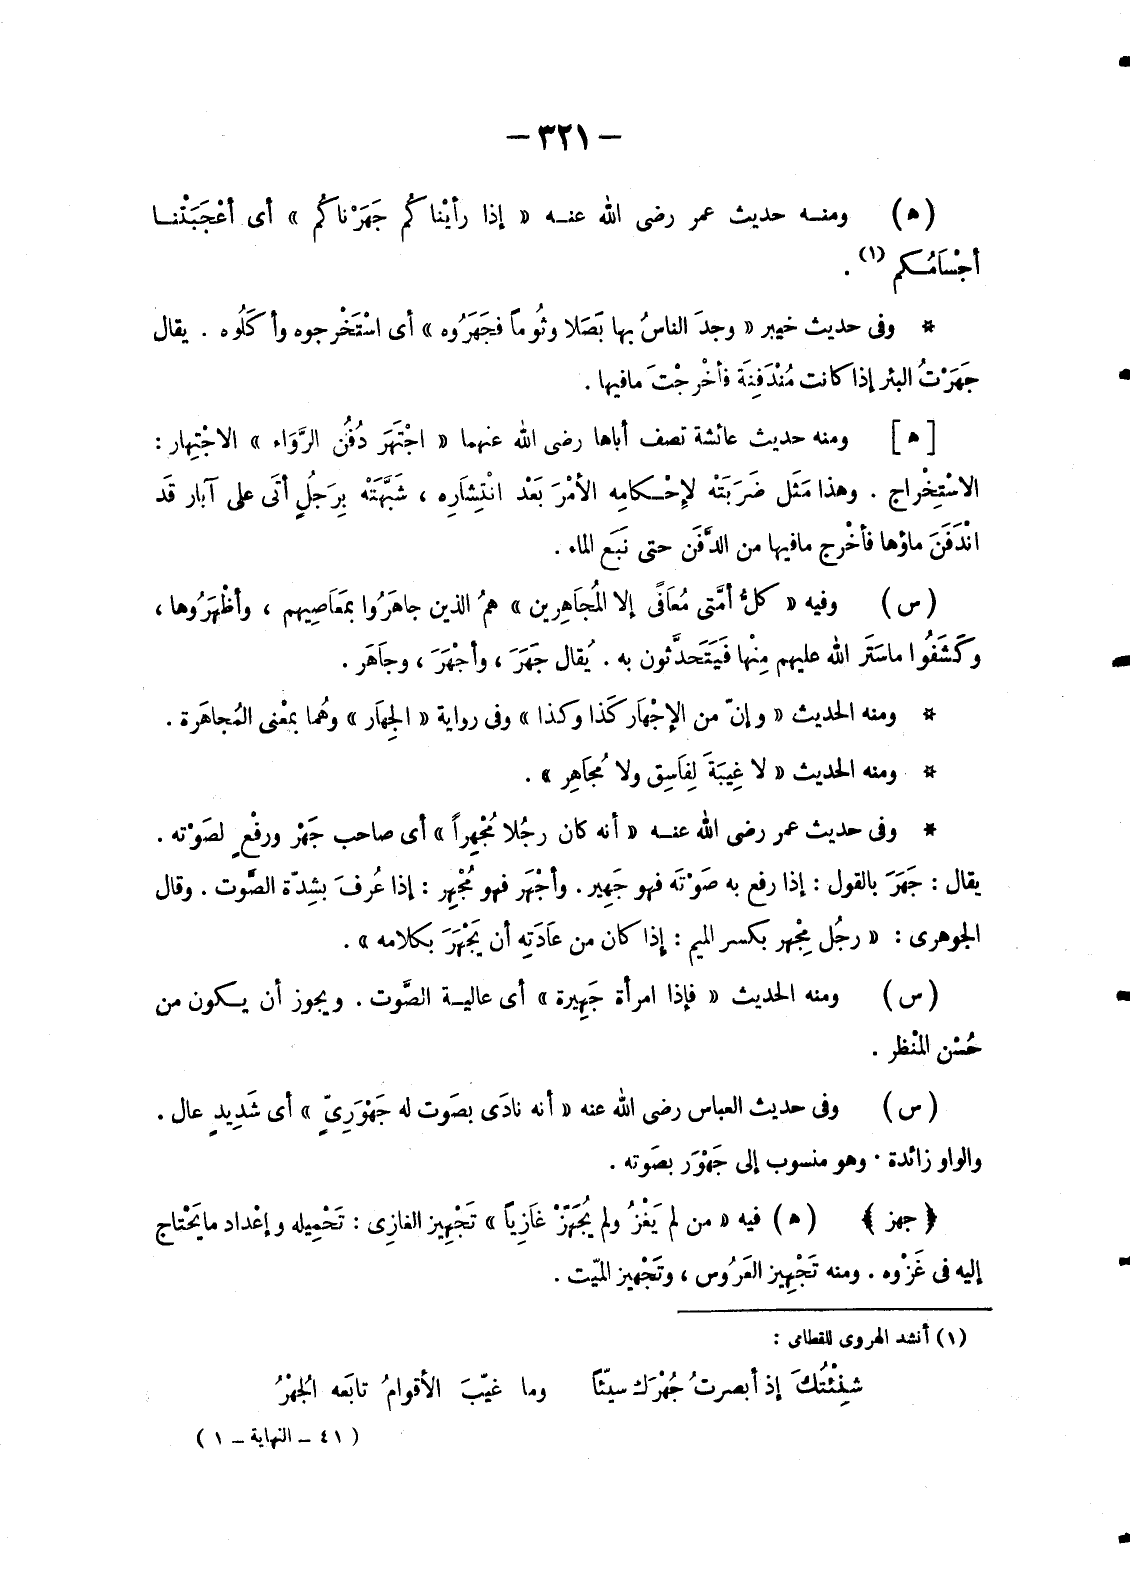 — ٣٢١ —
(ه) ومنـه حديث عمر رضى الله عنـه « إذا رأيْناكُم جَهَرْناكُم » أى أعْجَبَتْنـا
أجْسَامُـكم (١) .
* وفى حديث خيبر « وجدَ الناسُ بها بَصَلا وثُوماً فجَهَرُوه » أى اسْتَخْرجوه وأكَلُوه . يقال
جَهَرْتُ البئر إذا كانت مُنْدَفِنَة فأخْرجْتَ مافيها .
[ه] ومنه حديث عائشة تصف أباها رضى الله عنهما « اجْتَهَرَ دُفُنَ الرَّوَاء » الاجْتِهار :
الاسْتِخْراج . وهذا مَثَل ضَرَبَتْه لإِحْـكامِه الأمْرَ بَعْد انْتِشَارِه ، شَبَّهَتْه بِرَجلٍ أتَى على آبار قَد
انْدَفَنَ ماؤها فأخْرج مافيها من الدَّفَن حتى نَبَع الماء .
(س) وفيه « كلُّ أمَّتى مُعَافًى إلا المُجَاهِرين » همُ الذين جاهَرُوا بمَعَاصِيهم ، وأظْهَرُوها ،
وكَشَفُوا ماسَتَر الله عليهم مِنْها فَيَتَحدَّثون به . يُقال جَهَرَ ، وأجْهَرَ ، وجاَهَر .
* ومنه الحديث « وإنّ من الإجْهَار كَذا وكذا » وفى رواية « الجِهَار » وهُما بمعْنى المُجاهَرة .
* ومنه الحديث « لا غِيبَةَ لِفَاسِق ولا مُجاهِر » .
* وفى حديث عمر رضى الله عنـه « أنه كان رجُلا مُجْهِراً » أى صاحب جَهْر ورفْعٍ لصَوْته .
يقال : جَهَرَ بالقول : إذا رفع به صَوْتَه فهو جَهِير . وأجْهَر فهو مُجْهِر : إذا عُرفَ بشِدّة الصَّوت . وقال
الجوهرى : « رجُل مِجْهر بكسر الميم : إذا كان من عَادَتِه أن يَجْهَرَ بكلامه » .
(س) ومنه الحديث « فإذا امرأة جَهِيرة » أى عاليـة الصَّوت . ويجوز أن يـكون من
حُسْن المنْظر .
(س) وفى حديث العباس رضى الله عنه « أنه نادَى بصَوت له جَهْوَرِىّ » أى شَدِيدٍ عال .
والواو زائدة . وهو منسوب إلى جَهْوَر بصَوته .
﴿ جهز ﴾ (ه) فيه « من لم يَغْزُ ولم يُجَهّزْ غَازِياً » تَجْهِيز الغازِى : تَحْمِيله وإعْداد مايَحْتاج
إليه فى غَزْوه . ومنه تَجْهِيز العَرُوس ، وتَجْهيز الميّت .
(١) أنشد الهروى للقطامى :
شَنِئْتُكَ إذ أبصرتُ جُهْرَك سيّئاً وما غيّبَ الأقوامُ تابَعه الجُهْرُ
( ٤١ ــ النهاية ــ ١ )